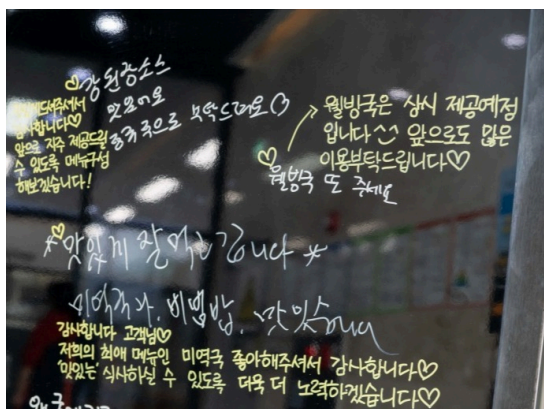 강된장소스
맛있어요
감사합니다♡
앞으로 자주 제공드릴
수 있도록 메뉴구성
해보겠습니다!
부탁드려요♡
월빙국은 상시 제공예정
입니다 앞으로도 많은
이용부탁드립니다♡
월빙국 또 주세요
*맛있게 잘 먹는 갑니다*
미역국과, 비빔밥, 맛있습니다
감사합니다 고객님♡
저희의 최애 메뉴인 미역국 좋아해주셔서 감사합니다♡
'맛있는' 식사하실 수 있도록 더욱 더 노력하겠습니다♡